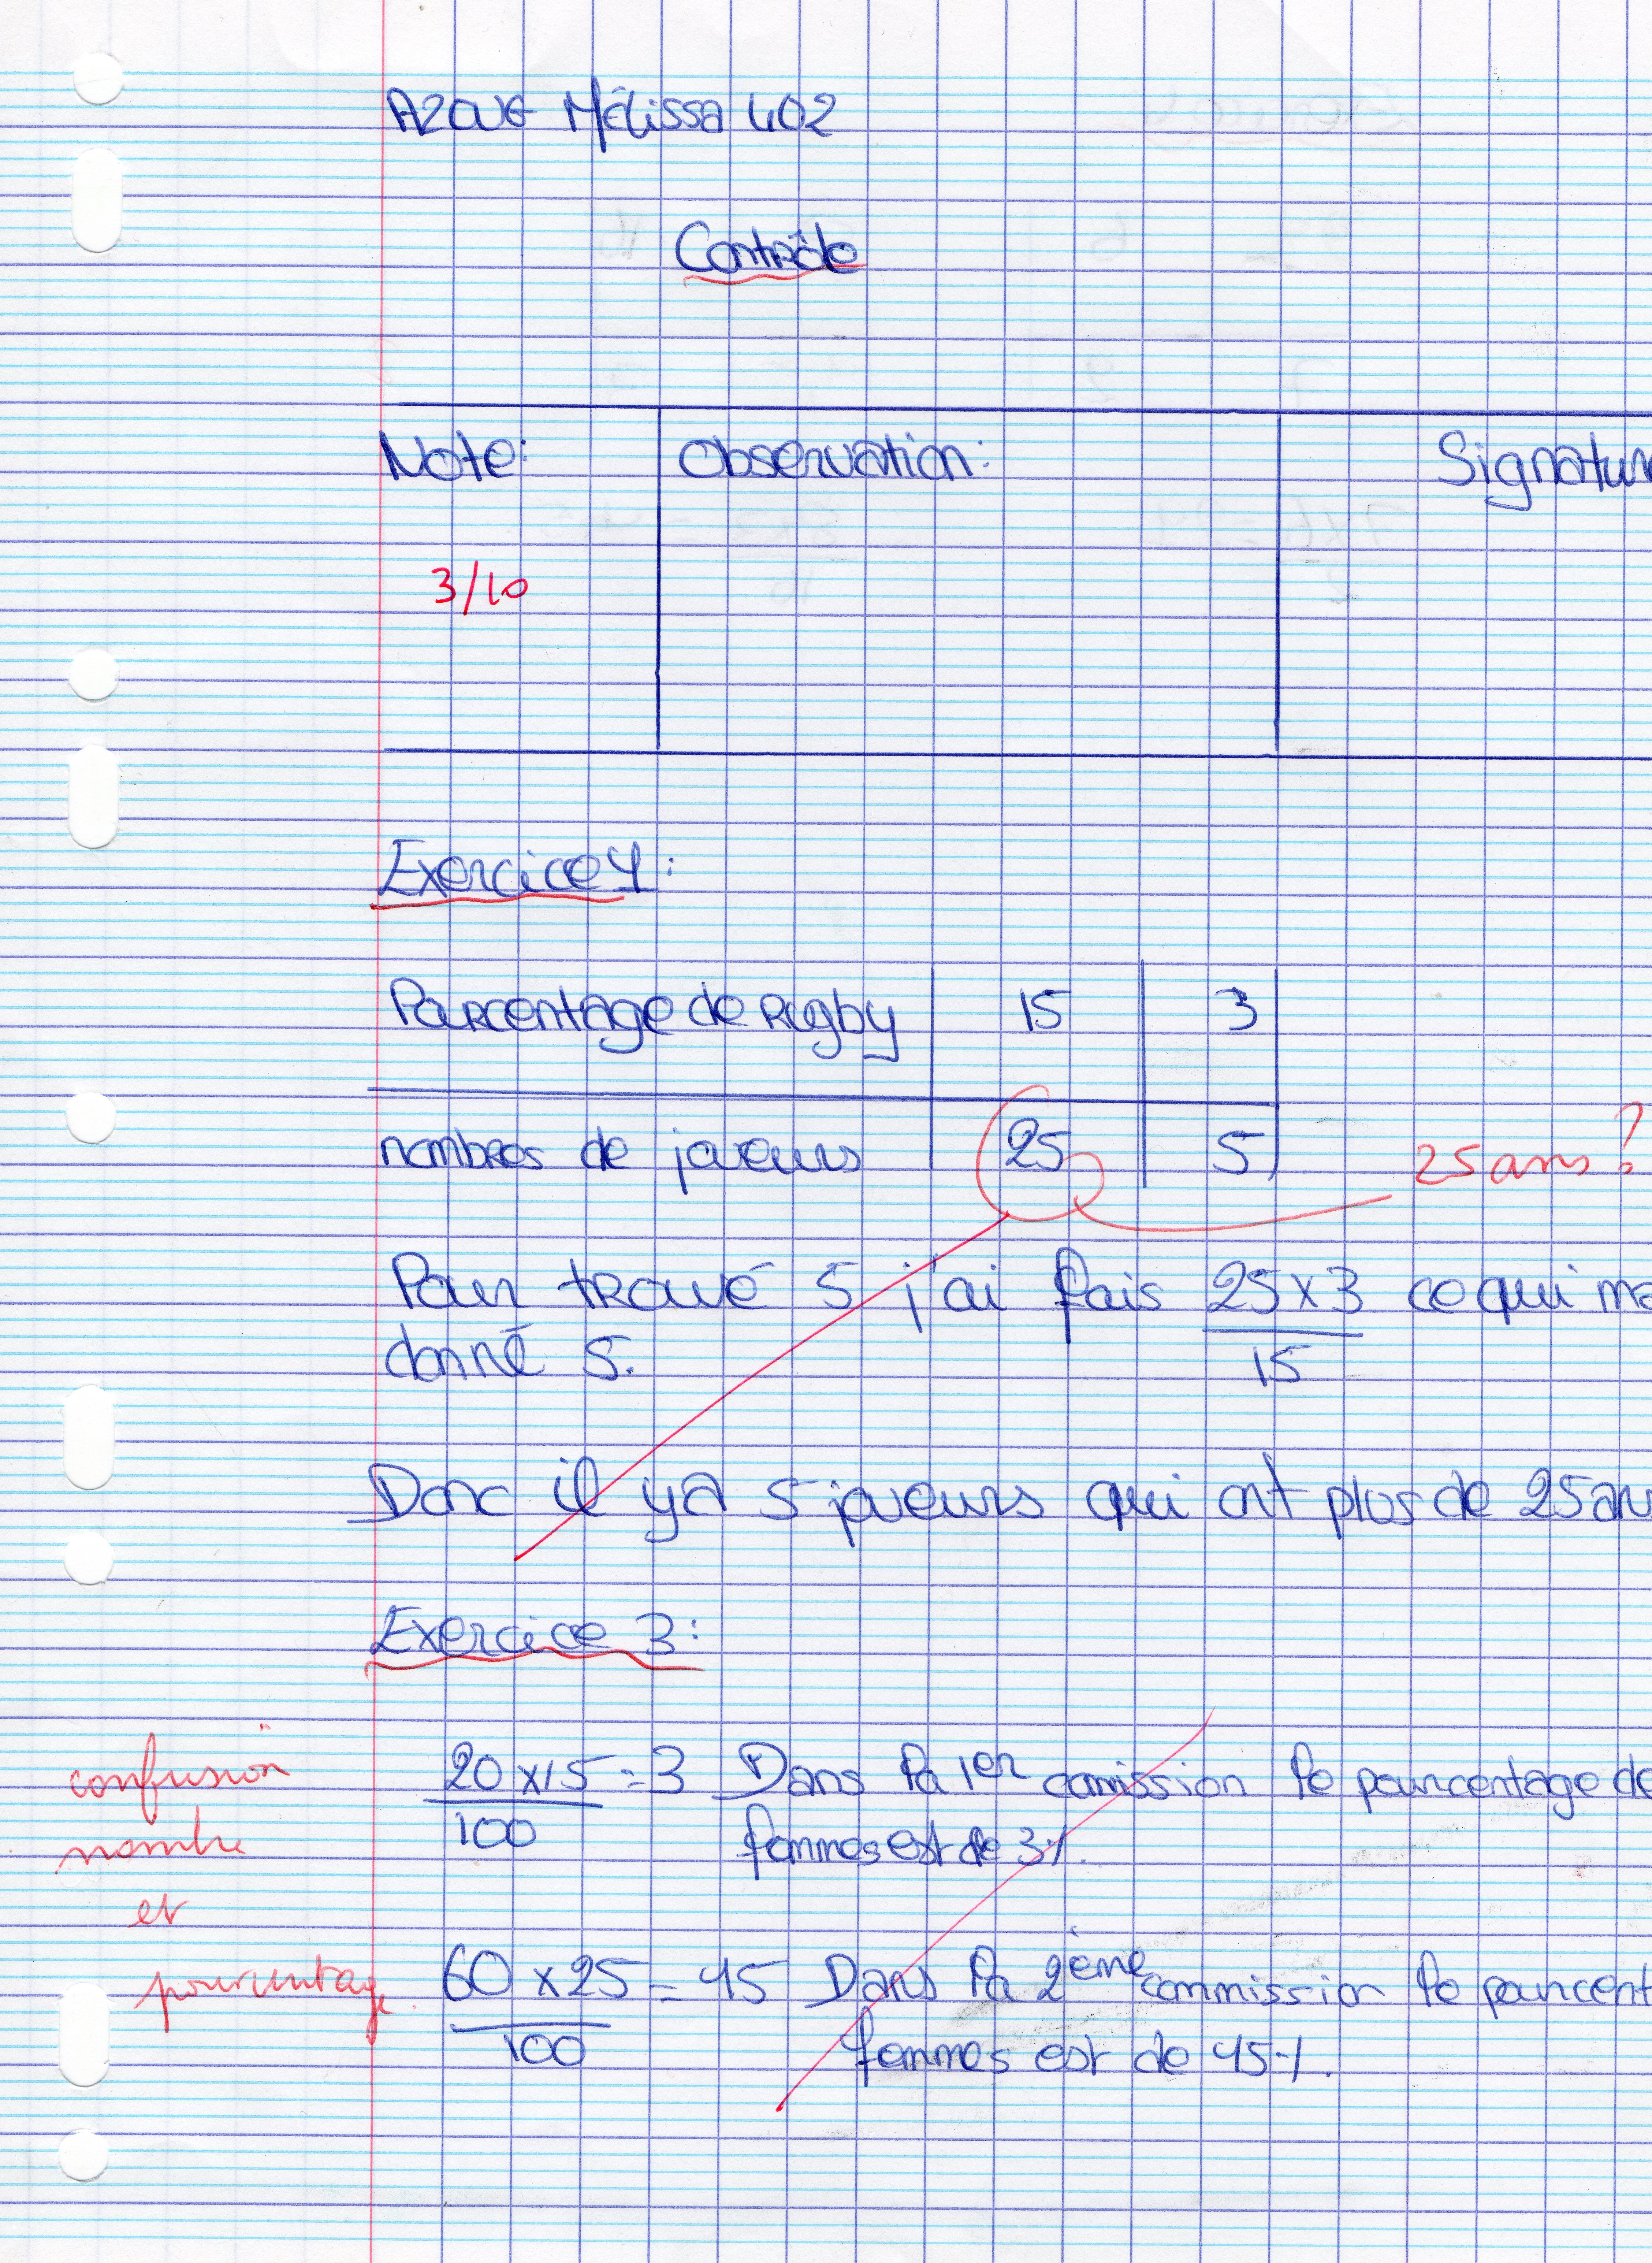 Azoug Mélissa 402
Contrôle
Note: Observation: Signature
3/10
Exercice 1:
Pourcentage de Rugby 15 3
nombres de joueurs 25 5
25 ans?
Pour trouvé 5 j'ai fais 25x3 ce qui ma
15
donné 5.
Donc il y a 5 joueurs qui ont plus de 25 ans
Exercice 3:
confusion
nombre
et
pourcentage.
20x15=3 Dans la 1er comission le pourcentage de
100 femmes est de 3%.
60x25=45 Dans la 2ème commission le pourcent
100 femmes est de 45%.